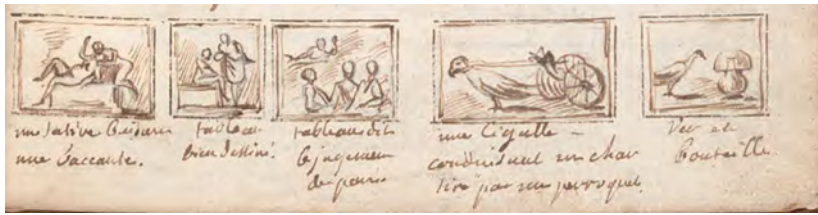 un satire baisant
une baccante.
tableau
bien dessiné.
tableau dit
le jugement
de paris
une Cigalle
conduisant un char
tiré par un perroquet.
bouteille